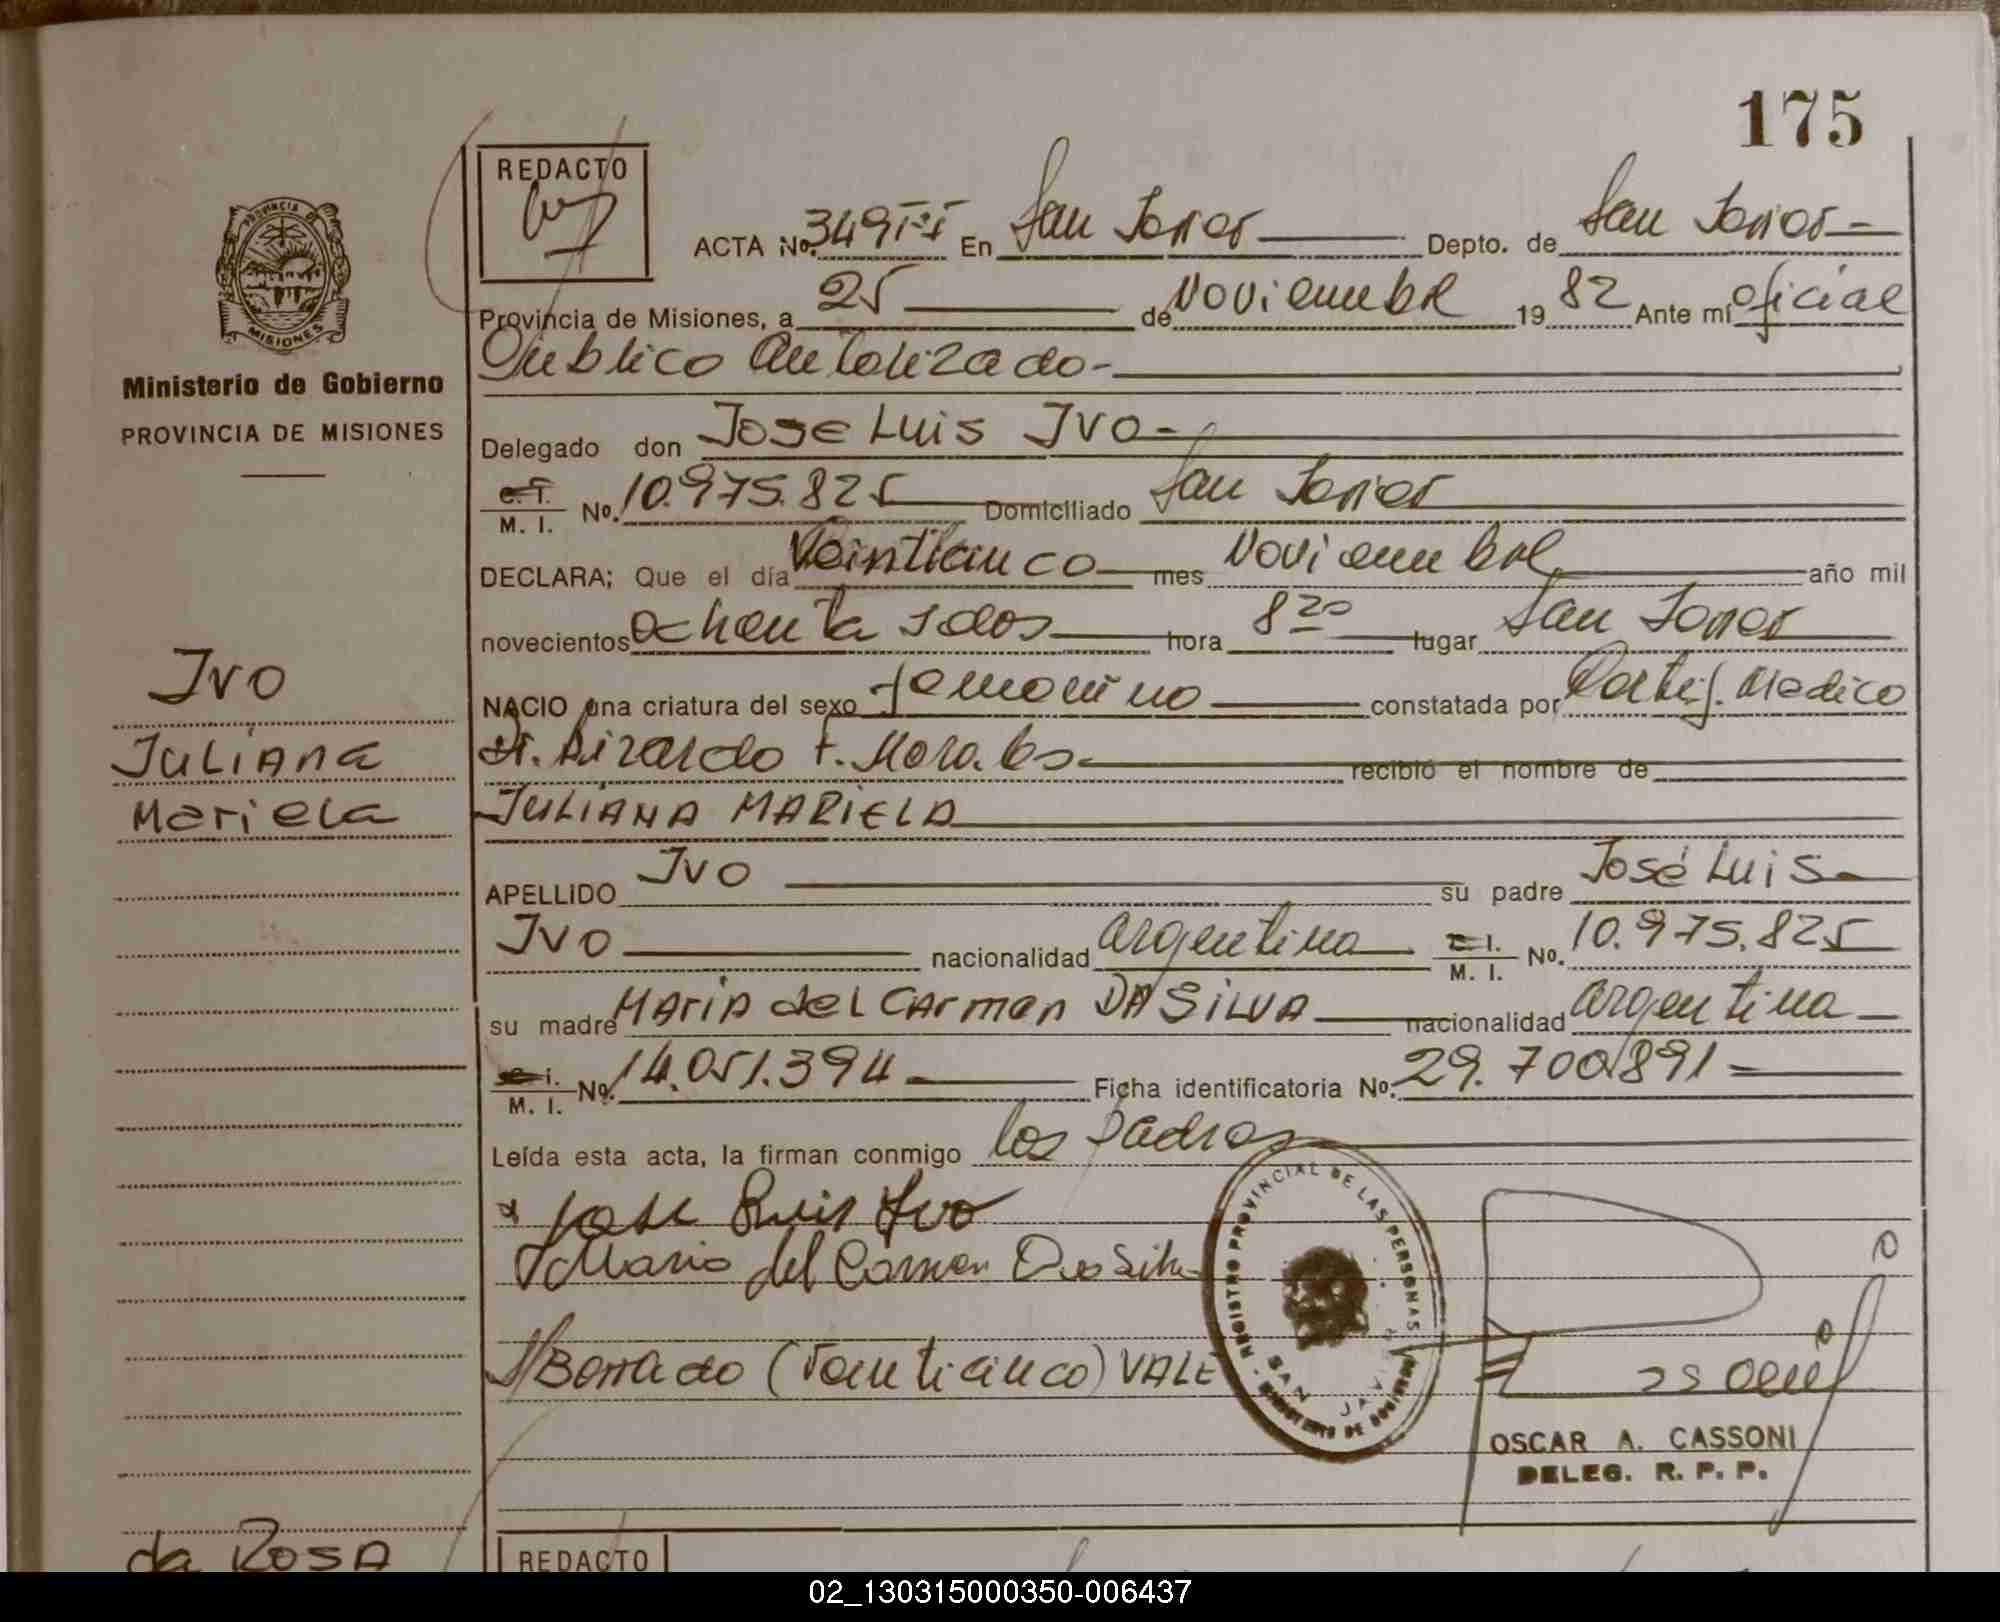 175
REDACTO
ACTA No. 349 En San Javier Depto. de San Javier
PROVINCIA DE MISIONES
Provincia de Misiones, a 25 de Noviembre 19 82 Ante mi oficial
Publico Autorizado
Ministerio de Gobierno
PROVINCIA DE MISIONES
Delegado don Jose Luis IVO
C. I. M. I. No. 10.975.825 Domiciliado San Javier
DECLARA; Que el día Veinticinco mes Noviembre año mil
novecientos ochenta y dos hora 8 20 lugar San Javier
NACIO una criatura del sexo femenino constatada por Certif. Medico
Dr. Lizardo F. Morales recibió el nombre de
JULIANA MARIELA
Ivo
Juliana
Mariela
APELLIDO IVO su padre José Luis
IVO nacionalidad argentina C. I. M. I. No. 10.975.825
su madre Maria del Carmen DA SILVA nacionalidad argentina
C. I. M. I. No. 14.051.394 Ficha identificatoria No. 29.700.891
Leída esta acta, la firman conmigo los padres
Jose Luis Ivo
Maria del Carmen Da Silva
Borrado (Veinticinco) VALE
REGISTRO PROVINCIAL DE LAS PERSONAS
SAN JAVIER
MINISTERIO DE GOBIERNO
OSCAR A. CASSONI
DELEG. R. P. P.
da Rosa
REDACTO
02_130315000350-006437